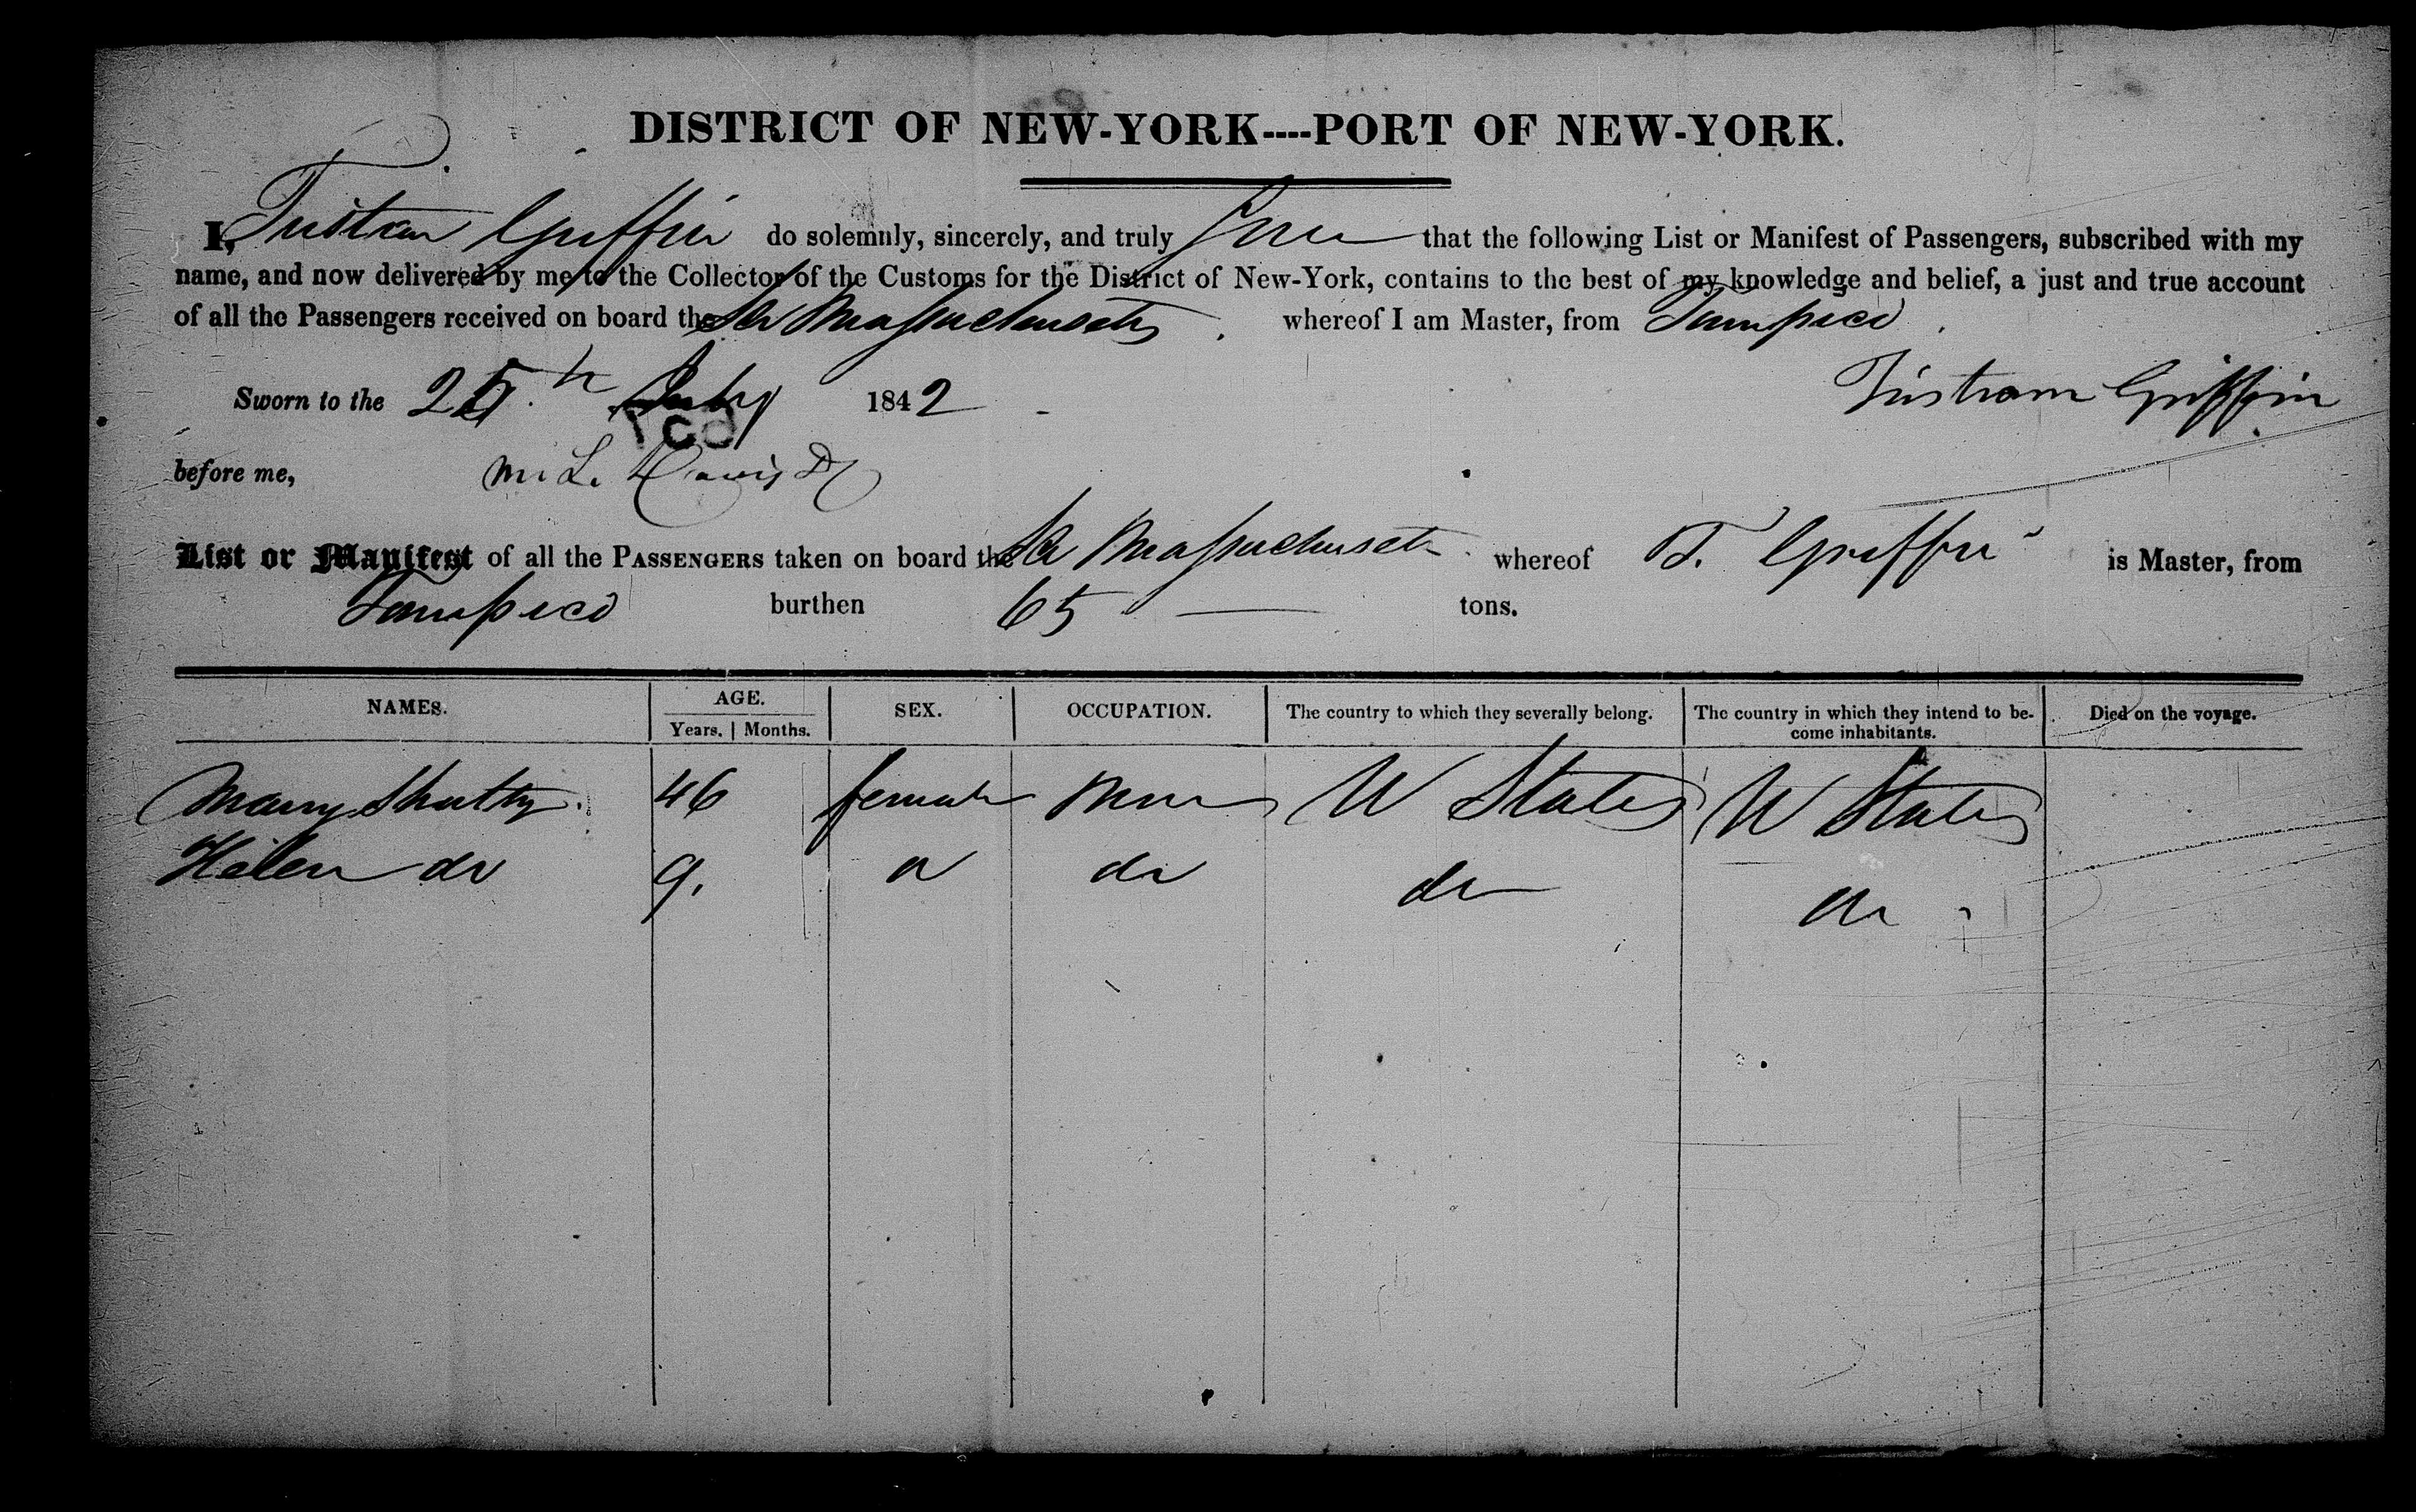 DISTRICT OF NEW-YORK----PORT OF NEW-YORK.
I, Tristram Griffin do solemnly, sincerely, and truly that the following List or Manifest of Passengers, subscribed with my
name, and now delivered by me to the Collector of the Customs for the District of New-York, contains to the best of my knowledge and belief, a just and true account
of all the Passengers received on board the Sch Massachusetts whereof I am Master, from Tampico.
Sworn to the 25th July 1842 Tristram Griffin
before me, M. L. Davis
List or Manifest of all the PASSENGERS taken on board the Sch Massachusetts whereof T. Griffin is Master, from
Tampico burthen 65 tons.
NAMES. AGE. SEX. OCCUPATION. The country to which they severally belong. The country in which they intend to be- Died on the voyage.
Years. Months. come inhabitants.
Mary 46 female U States U States
Helen do 9. do do do do